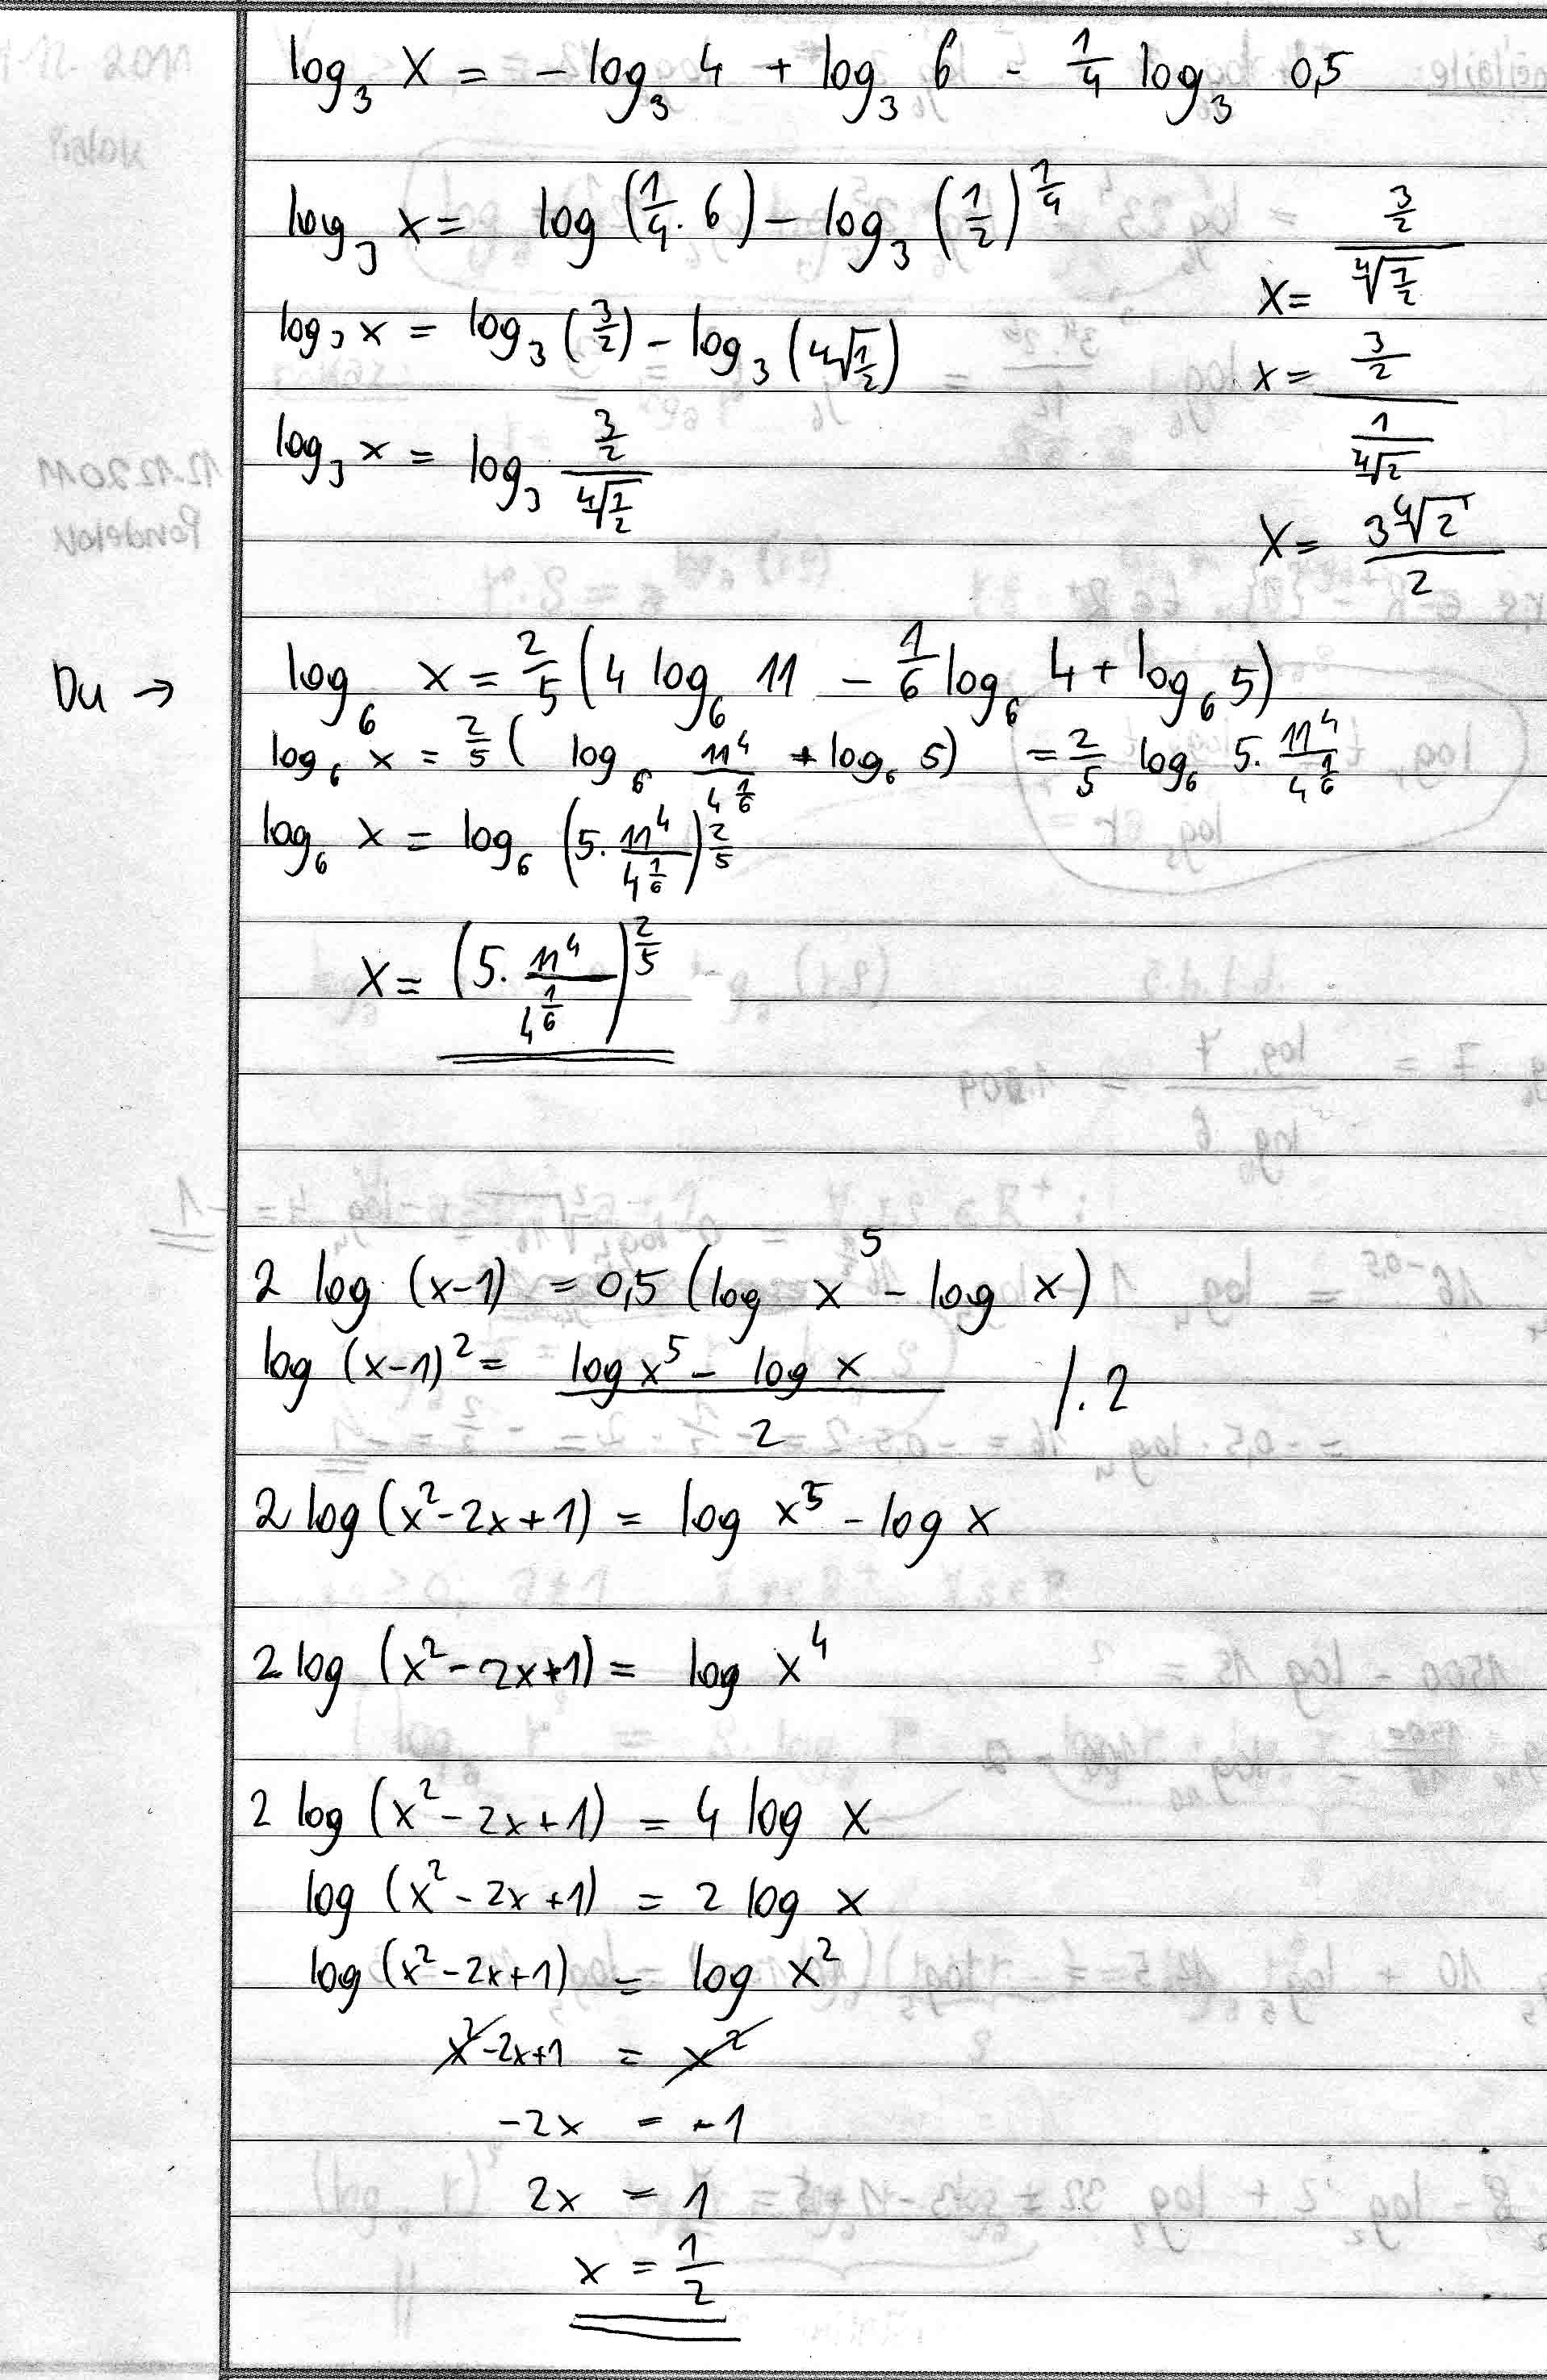 log₃ x = - log₃ 4 + log₃ 6 - 1/4 log₃ 0,5
log₃ x = log (1/4 . 6) - log₃ (1/2)^(1/4)
log₃ x = log₃ (3/2) - log₃ (⁴√(1/2))
log₃ x = log₃ (3/2)/(⁴√(1/2))
x = (3/2)/(⁴√(1/2))
x = (3/2)/(1/⁴√2)
x = 3⁴√2/2
Du → log₆ x = 2/5 (4 log₆ 11 - 1/6 log₆ 4 + log₆ 5)
log₆ x = 2/5 ( log₆ 11⁴/4^(1/6) + log₆ 5) = 2/5 log₆ 5. 11⁴/4^(1/6)
log₆ x = log₆ (5. 11⁴/4^(1/6))^(2/5)
x = (5. 11⁴/4^(1/6))^(2/5)
2 log (x-1) = 0,5 (log x⁵ - log x)
log (x-1)² = (log x⁵ - log x)/2 /. 2
2 log (x²-2x+1) = log x⁵ - log x
2 log (x²-2x+1) = log x⁴
2 log (x²-2x+1) = 4 log x
log (x²-2x+1) = 2 log x
log (x²-2x+1) = log x²
x²-2x+1 = x²
-2x = -1
2x = 1
x = 1/2